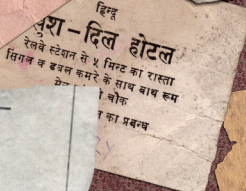 हिन्दू
खुश - दिल होटल
रेलवे स्टेशन से ५ मिन्ट का रास्ता
सिंगल व डबल कमरे के साथ बाथ रूम
चौक
का प्रबन्ध